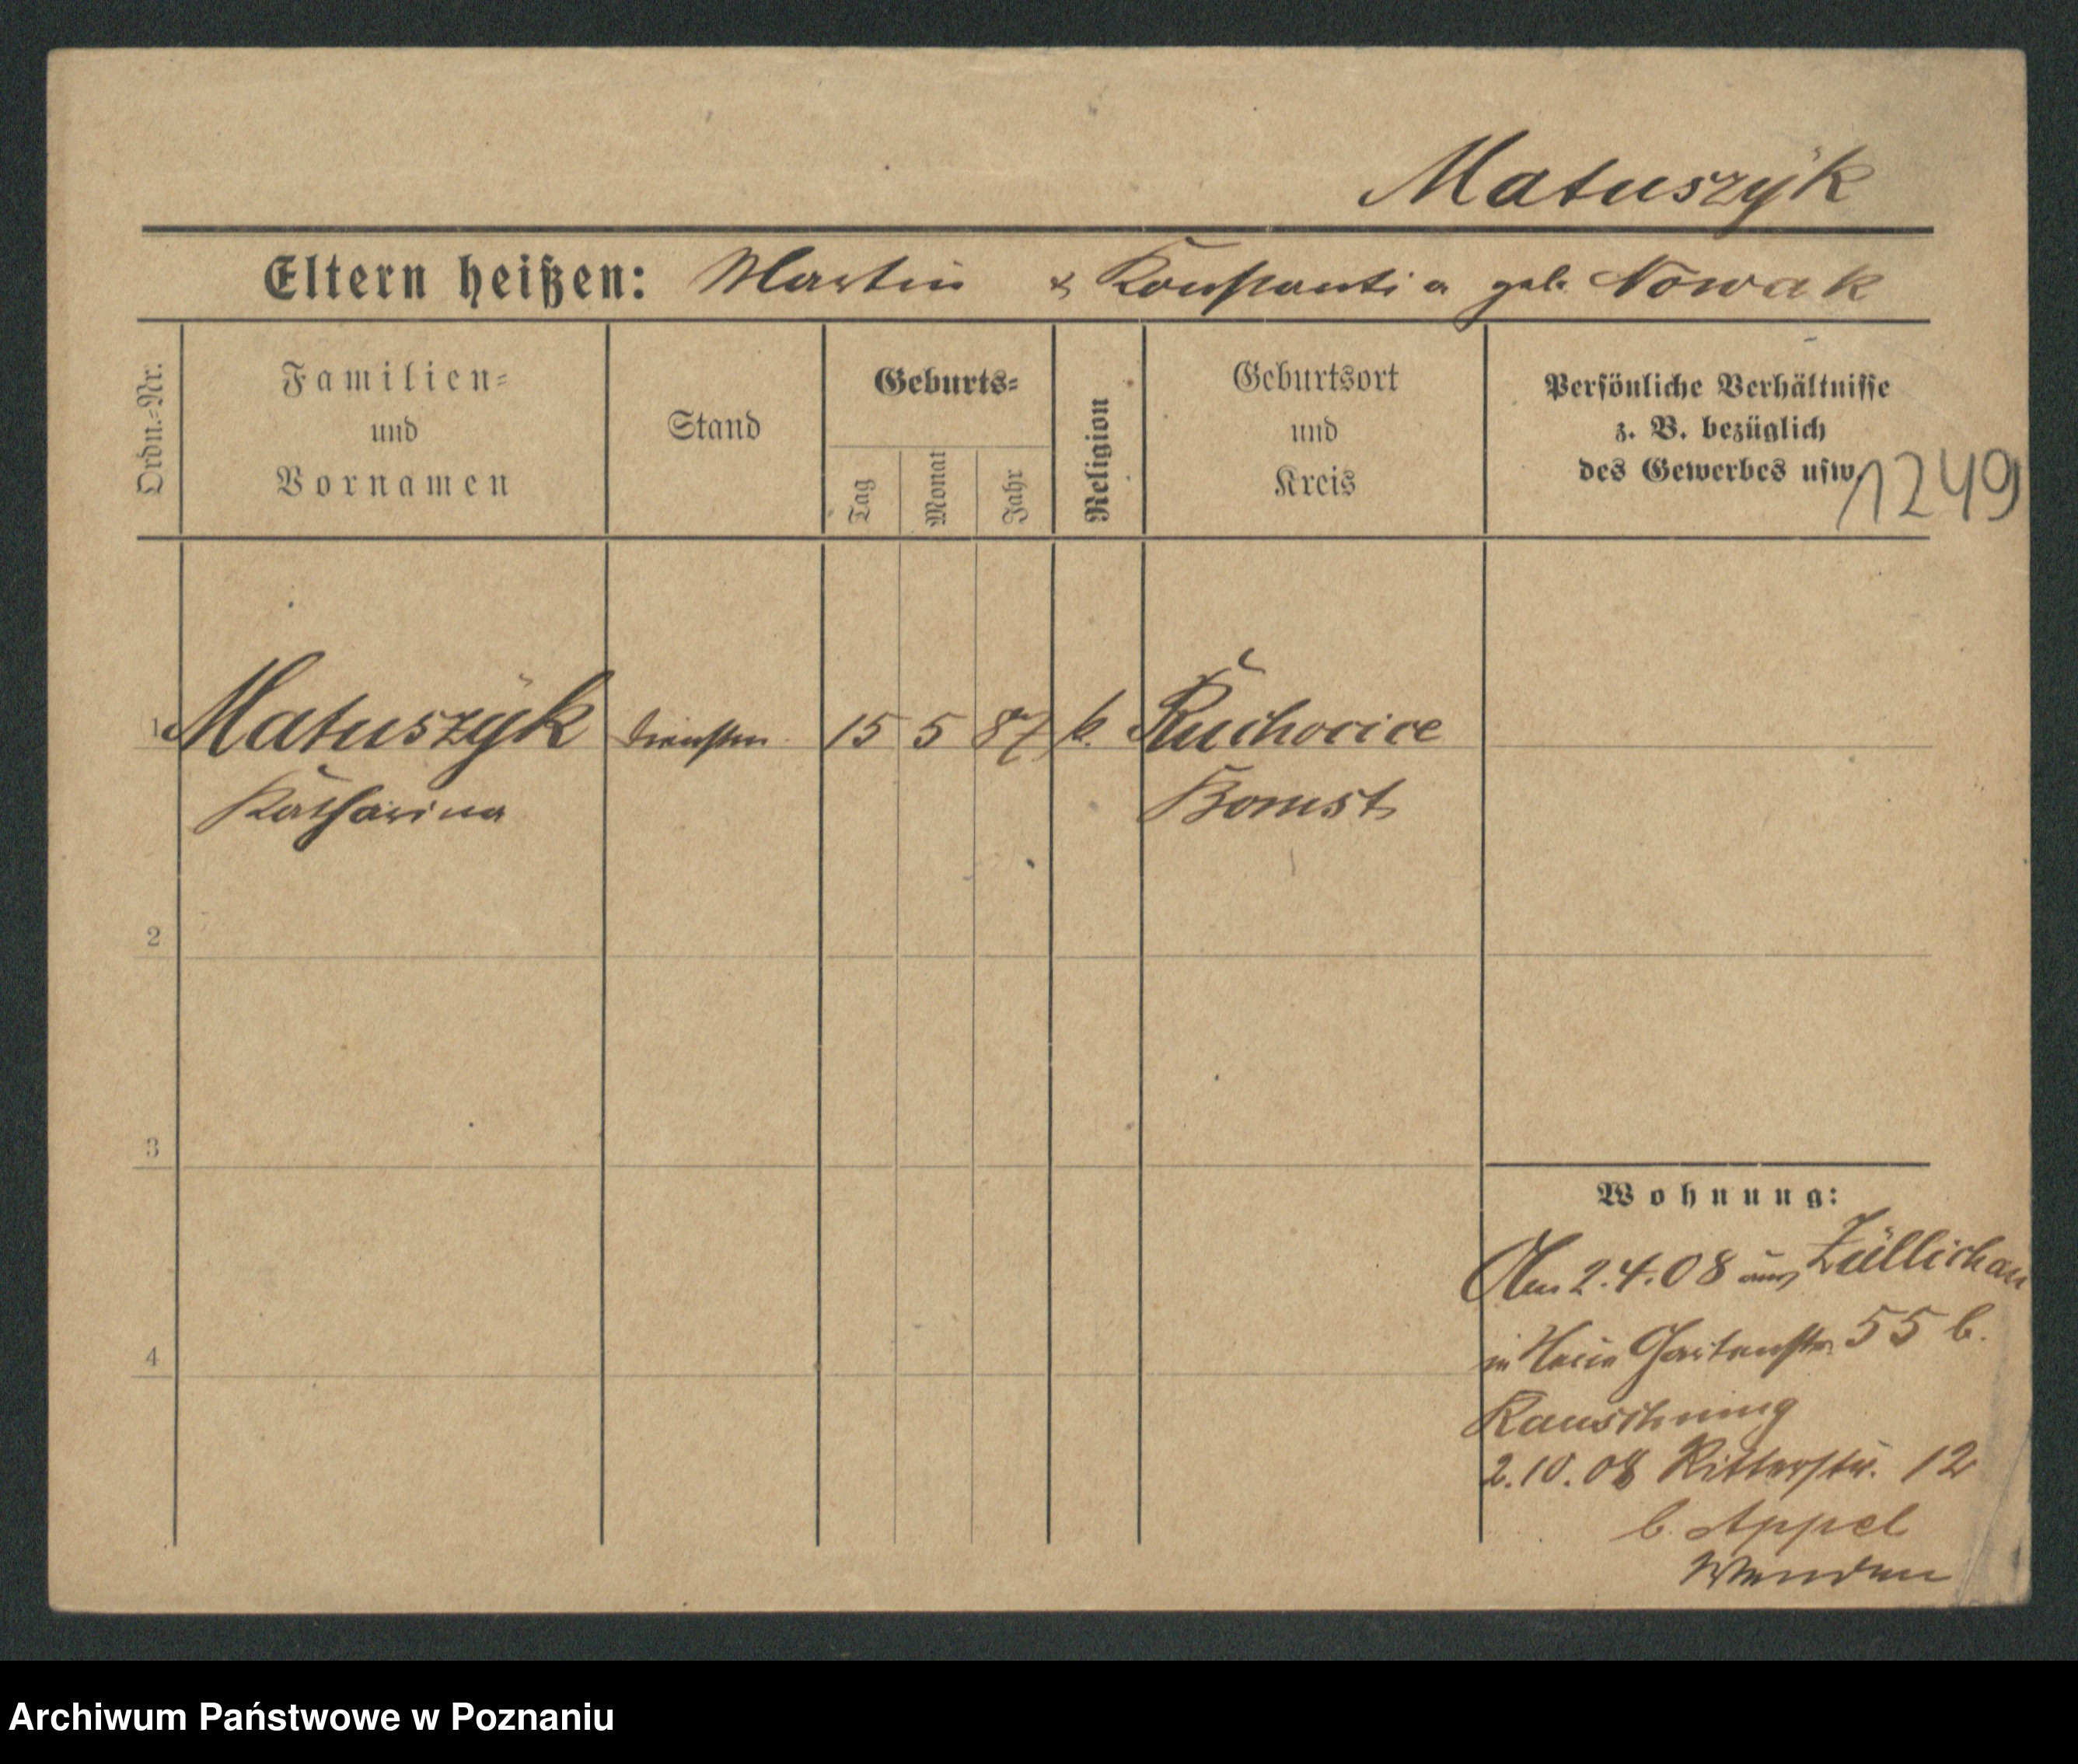 Matuszÿk
Eltern heißen: Martin & Konstantia geb. Nowak
Ordn.=Nr.
Familien=
und
Vornamen
Stand
Geburts=
Tag
Monat
Jahr
Religion
Geburtsort
und
Kreis
Persönliche Verhältnisse
z. B. bezüglich
des Gewerbes usw.
1249
1 Matuszÿk 15 5 87 k. Ruchocice
Katharina Bomst
2
3
4
Wohnung:
Am 2.4.08 aus Züllichau
in Gartenstr. 55 b.
Rauschning
2.10.08 Ritterstr. 12
b. Appel
Archiwum Państwowe w Poznaniu